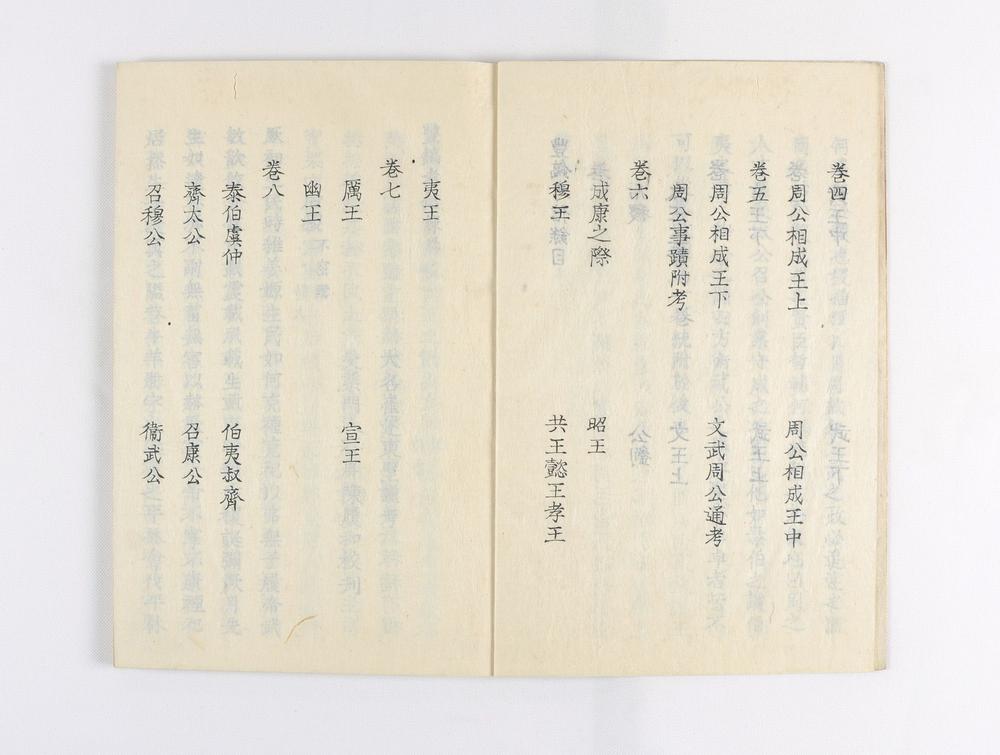 卷四
周公相成王上 周公相成王中
卷五
周公相成王下 文武周公通考
周公事蹟附考
卷六
成康之際 昭王
穆王 共王懿王孝王
夷王
卷七
厲王 宣王
幽王
卷八
泰伯虞仲 伯夷叔齊
齊太公 召康公
召穆公 衞武公